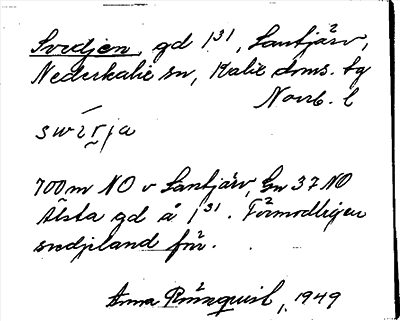 Svedjen, gd 1³¹, Lantjärv,
Nederkalix sn, Kalix doms. tg
Norrb. l
swírja
700 m NO v Lantjärv, Gn 37 NO
Älsta gd å 1³¹. Förmodligen
svedjeland förr.
Anna 1949